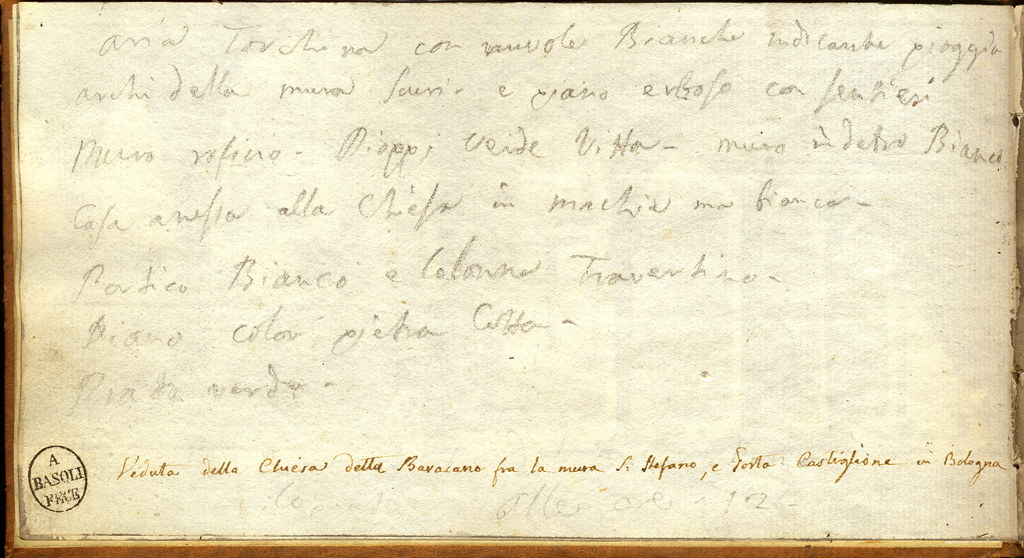 aria Torchina con nuvole Bianche indicante pioggia
archi della mura scuri - e piano erboso con sentieri
Muro rosicio - Pioppi verde Vitta - muro indetro Bianco
Casa anessa alla Chiesa in machia ma bianca -
Portico Bianco e Colonne Travertino -
Piano color pietra Cotta -
Prato verde -
A
BASOLI
FECE
Veduta della Chiesa della Baracano fra la mura S. Stefano, e Porta Castiglione in Bologna
alle ore 12 -